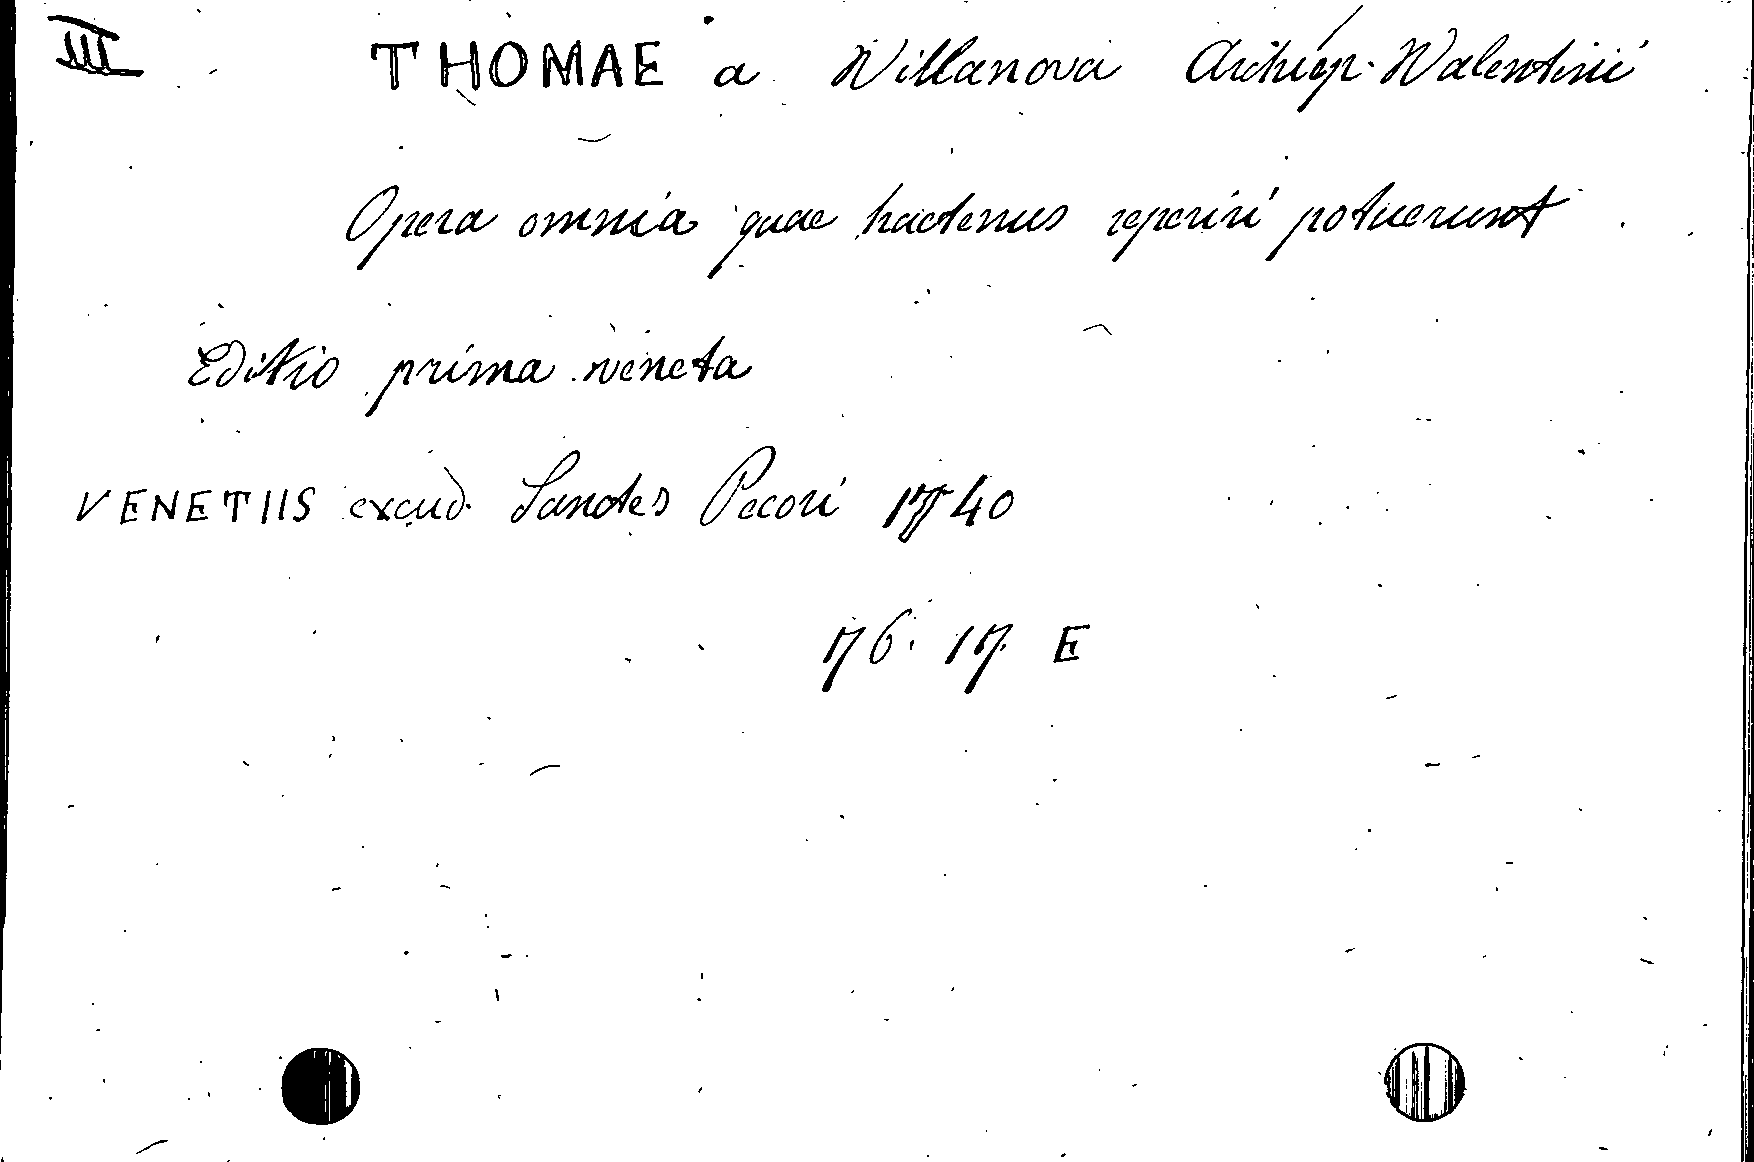 III THOMAE a Villanova Archiep. Valentini
Opera omnia quae hactenus reperiri potuerunt
Editio prima veneta
VENETIIS excud. Sanctes Pecori 1740
76. 17. E